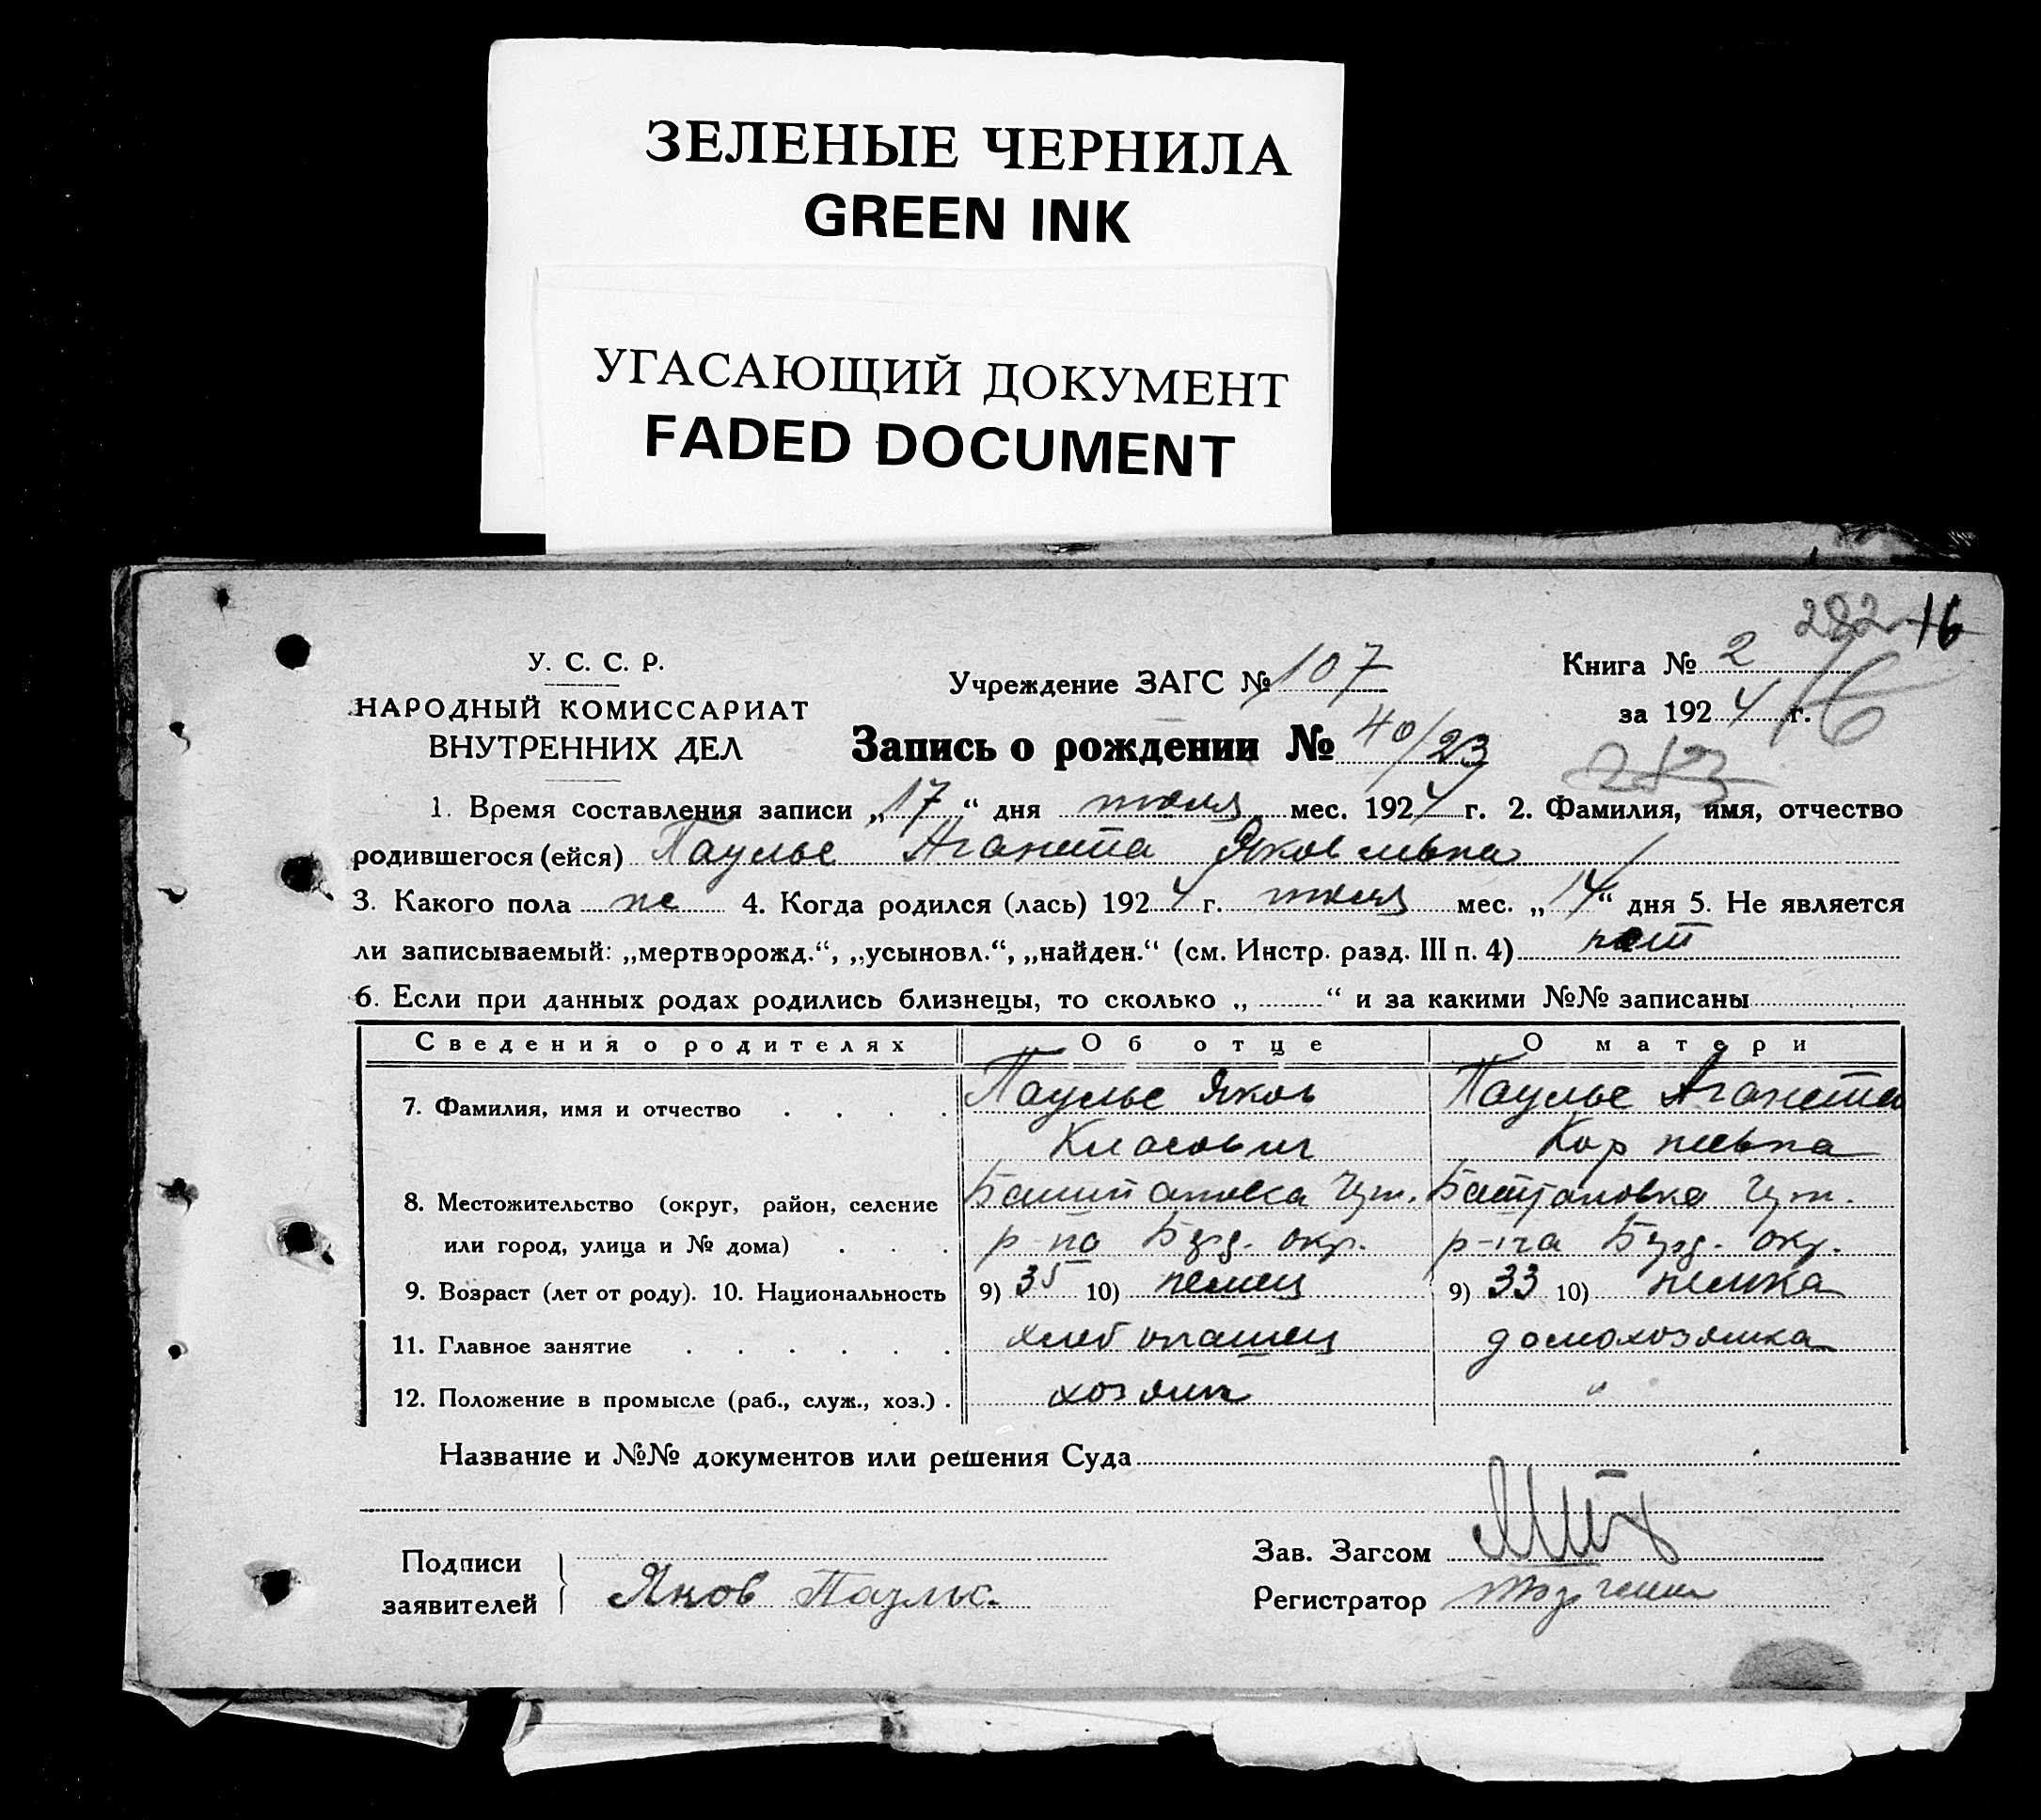 ЗЕЛЕНЫЕ ЧЕРНИЛА
GREEN INK
УГАСАЮЩИЙ ДОКУМЕНТ
FADED DOCUMENT
282 16
У. С. С. Р.
НАРОДНЫЙ КОМИССАРИАТ
ВНУТРЕННИХ ДЕЛ
Учреждение ЗАГС № 107
Книга № 2
за 1924 г. 16
Запись о рождении № 40/23
283
1. Время составления записи „17“ дня июля мес. 1924 г. 2. Фамилия, имя, отчество
родившегося (ейся) Паульс Аганета Яковлевна
3. Какого пола 4. Когда родился (лась) 1924 г. июля мес. „14“ дня 5. Не является
ли записываемый: „мертворожд.“, „усыновл.“, „найден.“ (см. Инстр. разд. III п. 4) нет
6. Если при данных родах родились близнецы, то сколько „ “ и за какими №№ записаны
Сведения о родителях Об отце О матери
7. Фамилия, имя и отчество Паульс Яков Паульс Аганета
Класович Кор невна
8. Местожительство (округ, район, селение Баштановка Баштановка
или город, улица и № дома) р-на Берд. окр. р-на Берд. окр.
9. Возраст (лет от роду). 10. Национальность 9) 35 10) немец 9) 33 10) немка
11. Главное занятие хлебопашец домохозяйка
12. Положение в промысле (раб., служ., хоз.) хозяин "
Название и №№ документов или решения Суда
Подписи
заявителей Яков Паульс.
Зав. Загсом
Регистратор